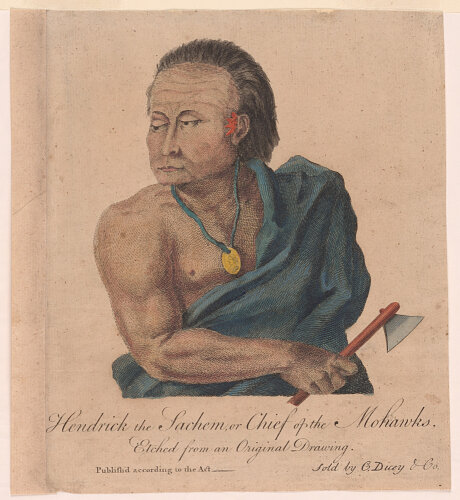 Hendrick the Sachem, or Chief of the Mohawks.
Etched from an Original Drawing.
Publish'd according to the Act
Sold by C. Dicey & Co.